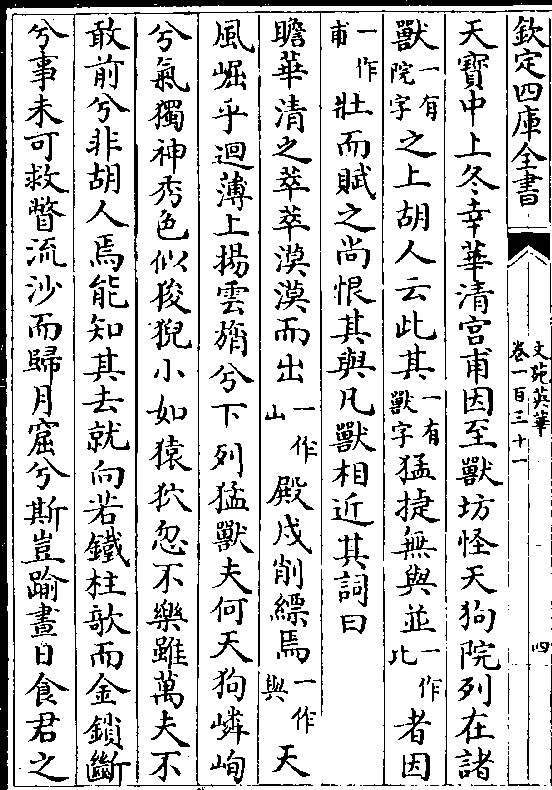 欽定四庫全書
文苑英華
卷一百三十一
四
天寶中上冬幸華清宮甫因至獸坊怪天狗院列在諸
獸一有院字之上胡人云此其一有獸字猛捷無與並一作比者因
一作甫壯而賦之尚恨其與凡獸相近其詞曰
瞻華清之萃萃漠漠而出一作山殿戌削縹焉一作與天
風崛乎迴薄上揚雲旓兮下列猛獸夫何天狗嶙峋
兮氣獨神秀色似狻猊小如猿狖忽不樂雖萬夫不
敢前兮非胡人焉能知其去就向若鐵柱欹而金鎖斷
兮事未可救瞥流沙而歸月窟兮斯豈踰晝日食君之